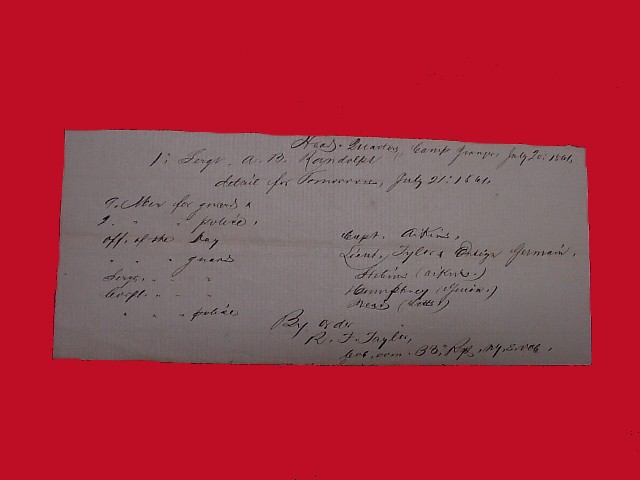 Head-Quarters, Camp Granger July 20: 1861,
1: Sergt. A. B. Randolph
detail for Tomorrow, July 21: 1861,
7. Men for guard &
2. " " police,
off. of the Day Capt. Aikins,
" " " guard Lieut. Tyler & Ensign Germain,
Sergt. " " " Stebins (Aikins.)
Corpl. " " " Humphrey
" " " police Mead
By order
R. F. Taylor,
Col. com. 33: Rgt. N.Y.S. Vols,